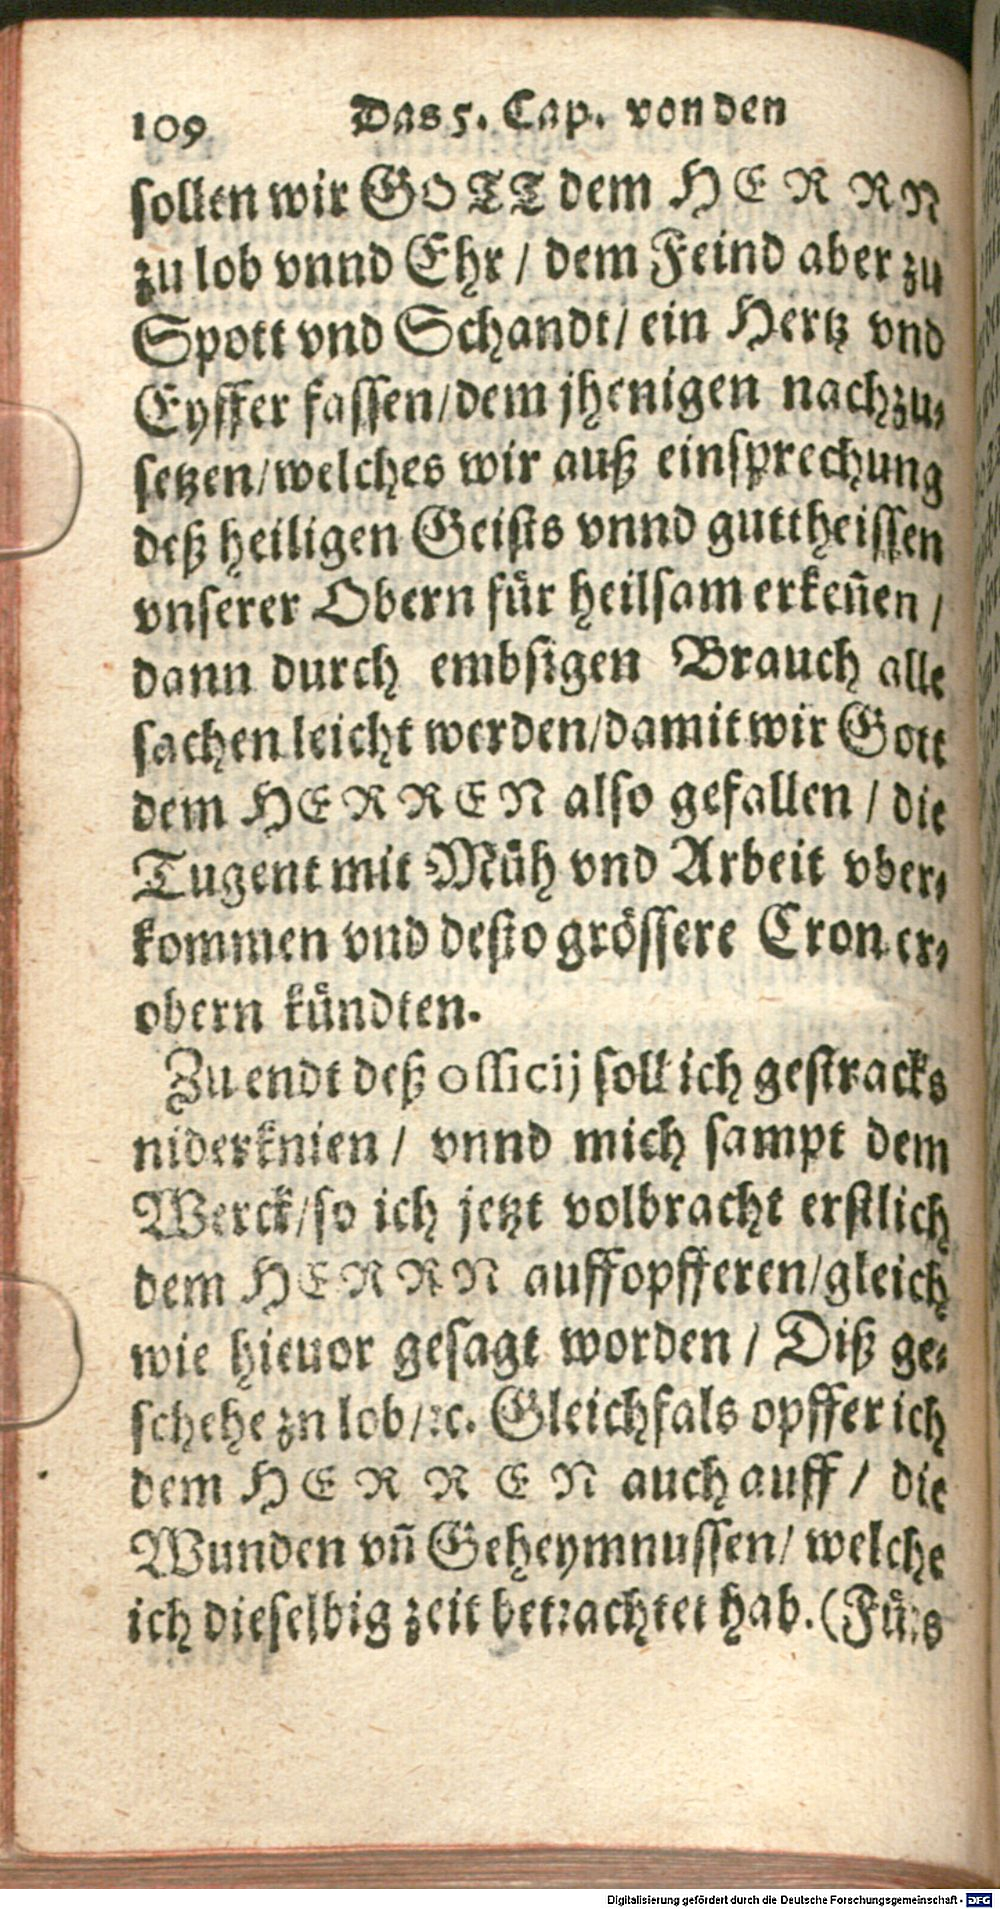 109 Das 5. Cap. von den
sollen wir GOTT dem HERRN
zu lob vnnd Ehr / dem Feind aber zu
Spott vnd Schandt / ein Hertz vnd
Eyffer fassen / dem jhenigen nachzu-
setzen / welches wir auß einsprechung
deß heiligen Geists vnnd guttheissen
vnserer Obern für heilsam erkeñen /
dann durch embsigen Brauch alle
sachen leicht werden / damit wir Gott
dem HERREN also gefallen / die
Tugent mit Müh vnd Arbeit vber-
kommen vnd desto grössere Cron er-
obern kündten.
Zu endt deß officij soll ich gestracks
niderknien / vnnd mich sampt dem
Werck / so ich jetzt volbracht erstlich
dem HERRN auffopfferen / gleich
wie hieuor gesagt worden / Diß ge-
schehe zn lob / ꝛc. Gleichfals opffer ich
dem HERREN auch auff / die
Wunden vñ Geheymnussen / welche
ich dieselbig zeit betrachtet hab. (Fürs
Digitalisierung gefördert durch die Deutsche Forschungsgemeinschaft - DFG